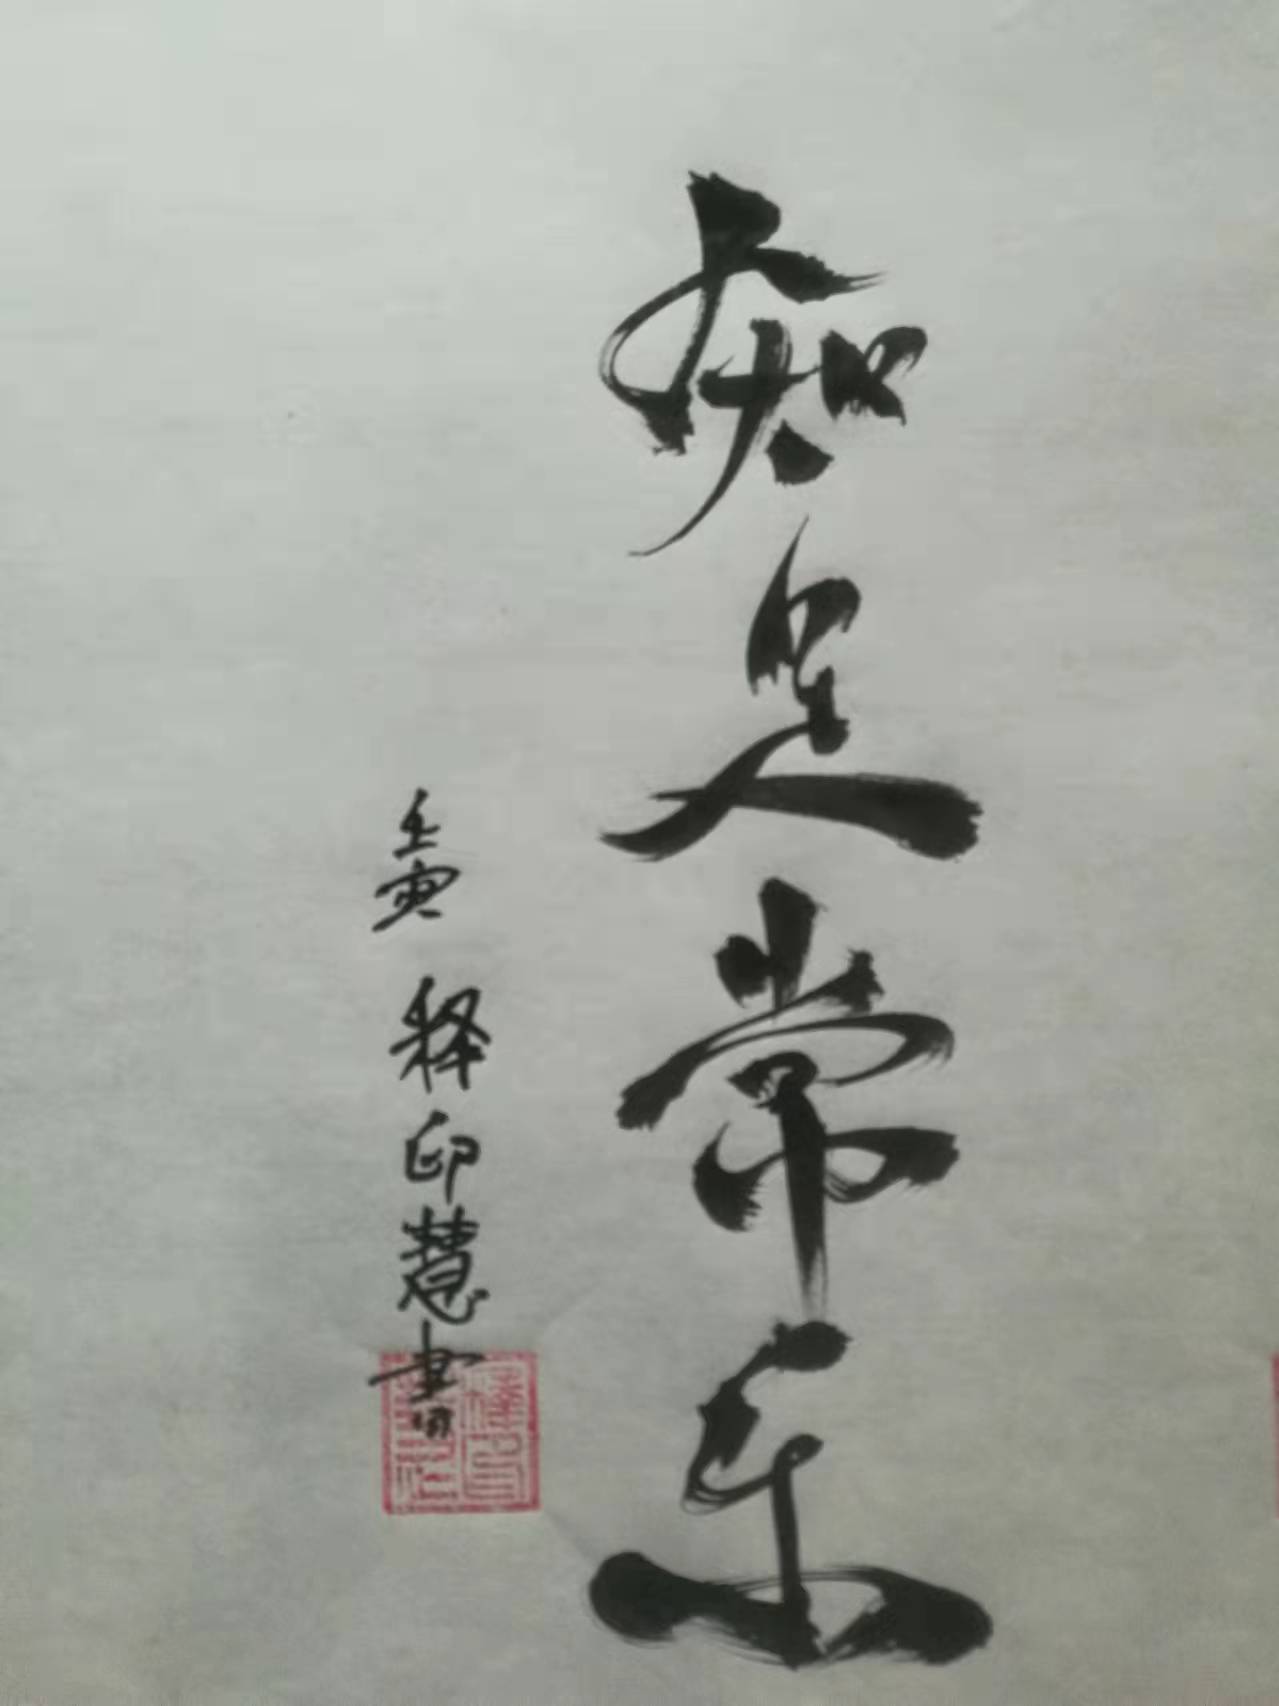 知足常乐
壬寅 释印慧书